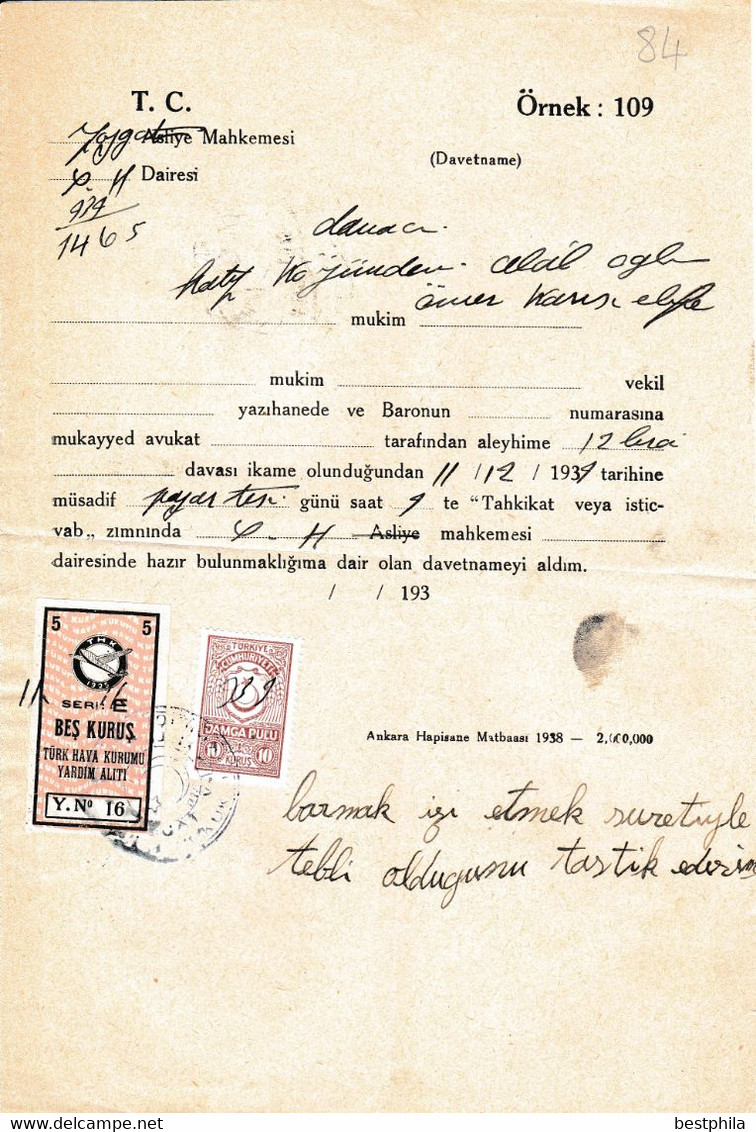 84
T. C.
Örnek : 109
Yozgat Asliye Mahkemesi
(Davetname)
Dairesi
939
1465
davacı
köyünden Celâl oğlu
Ömer Karısı Elife
mukim
mukim vekil
yazıhanede ve Baronun numarasına
mukayyed avukat tarafından aleyhime 12 lira
davası ikame olunduğundan 11 / 12 / 1939 tarihine
müsadif pazartesi günü saat 9 te “Tahkikat veya istic-
vab„ zımnında Asliye mahkemesi
dairesinde hazır bulunmaklığıma dair olan davetnameyi aldım.
/ / 193
5 5
THK
1925
SERİ E
BEŞ KURUŞ
TÜRK HAVA KURUMU
YARDIM ALITI
Y. Nº 16
TÜRKİYE
CUMHURİYETİ
939
DAMGA PULU
10 KURUŞ 10
Ankara Hapisane Matbaası 1938 — 2,000,000
barmak izi etmek suretiyle
tebli olduğunu tastik ederim
bestphila